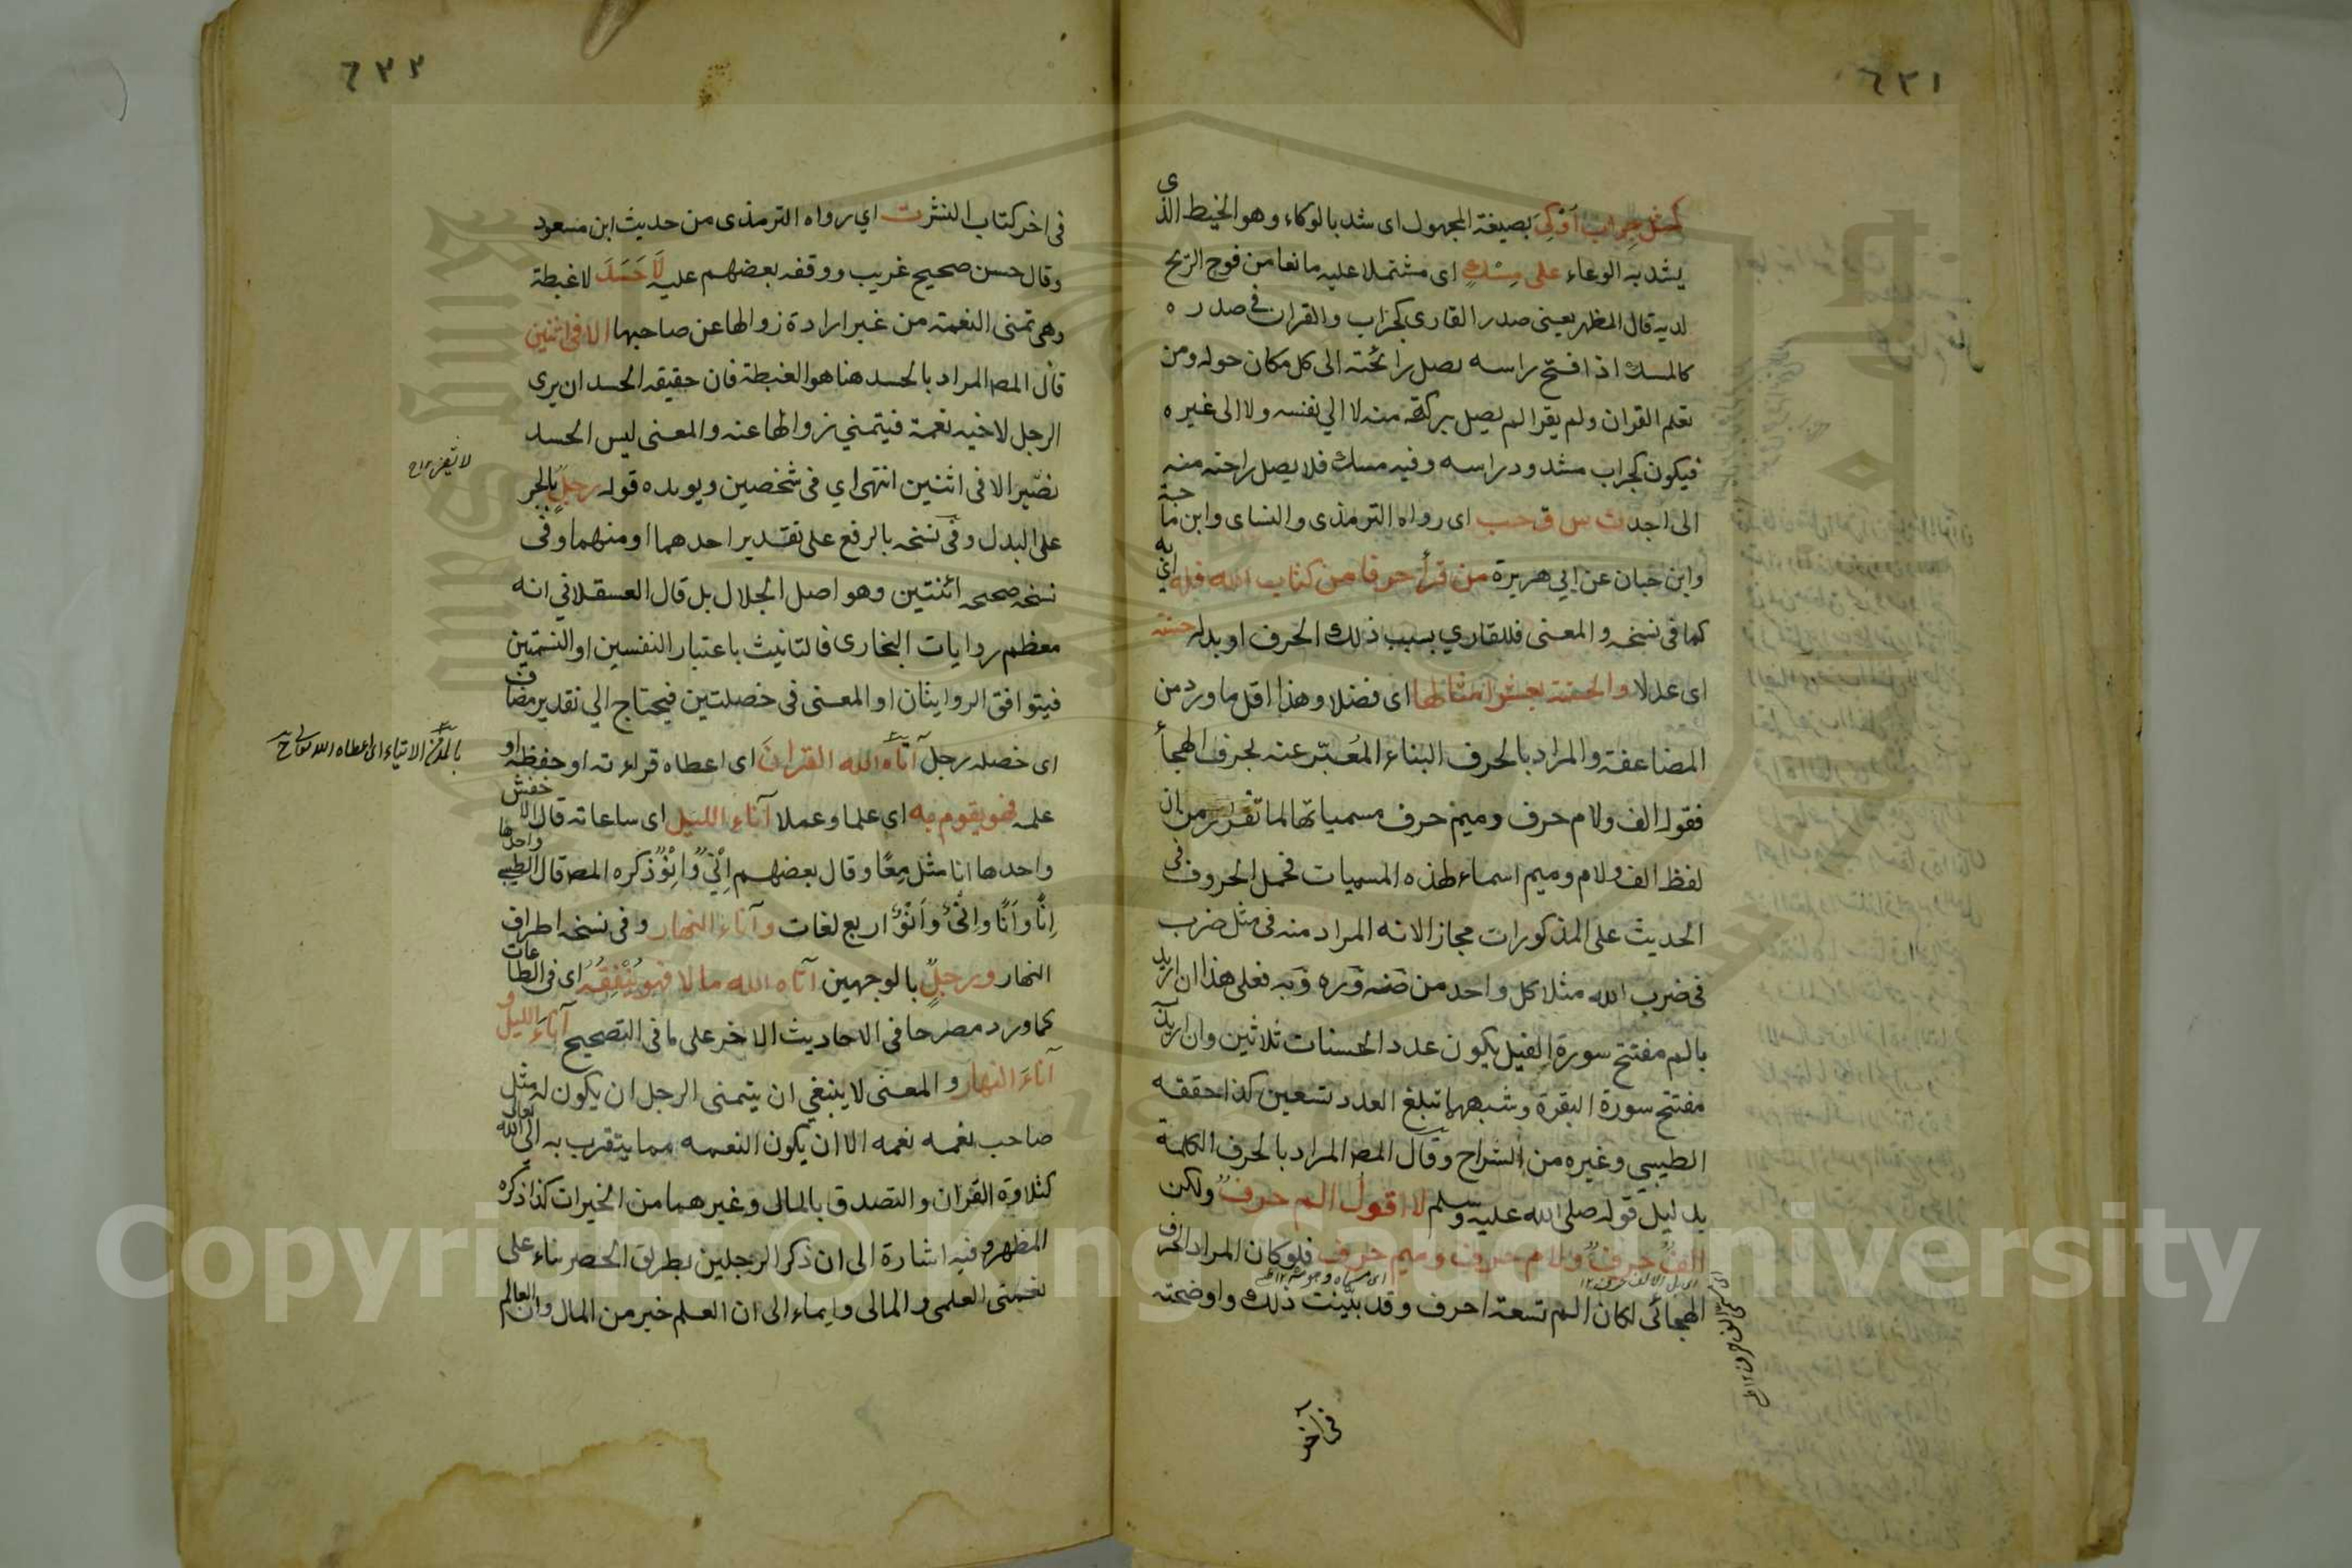 ٦٣١
كمثل جراب أوكي بصيغة المجهول اى شد بالوكاء وهو الخيط الذى
يشد به الوعاء على مسك اى مشتملا عليه مانعا من فوح الريح
لديه قال المظهر يعنى صدر القارى كجراب والقران فى صدره
كالمسك اذا فتح راسه يصل رائحته الى كل مكان حوله ومن
تعلم القران ولم يقرا لم يصل بركته منه لا الي نفسه ولا الى غيره
فيكون كجراب مشدود راسه وفيه مسك فلا يصل راحته منه
الى احد ت س ق حب اى رواه الترمذى والنساى وابن ماجة
وابن حبان عن ابي هريرة من قرأ حرفا من كتاب الله فله اي به
كما فى نسخه والمعنى فللقاري بسبب ذلك الحرف او بدله حسنة
اى عدلا والحسنة بعشر امثالها اى فضلا وهذا اقل ما ورد من
المضاعفة والمراد بالحرف البناء المعبّر عنه بحرف الهجاء
فقوله الف ولام حرف وميم حرف مسمياتها لما تقرر من ان
لفظ الف ولام وميم اسماء لهذه المسميات فحمل الحروف فى
الحديث على المذكورات مجازا لانه المراد منه فى مثل ضرب
فى ضرب الله مثلا كل واحد من ضه وره وبه فعلى هذا ان اريد
بالم مفتتح سورة الفيل يكون عدد الحسنات ثلاثين وان اريد
مفتتح سورة البقرة وشبهها تبلغ العدد تسعين كذا حققه
الطيبي وغيره من الشراح وقال المصـ المراد بالحرف الكلمة
بدليل قوله صلى الله عليه وسلم لا اقول الم حرف ولكن
الف حرف ولام حرف وميم حرف فلو كان المراد الحرف
الهجائى لكان الم تسعة احرف وقد بيّنت ذلك واوضحته
فى آخر
٦٣٢
فى اخر كتاب النشر ت اي رواه الترمذى من حديث ابن مسعود
وقال حسن صحيح غريب ووقفه بعضهم عليه لَا حَسَدَ لا غبطة
وهى تمنى النعمة من غير ارادة زوالها عن صاحبها الا فى اثنين
قال المصـ المراد بالحسد هنا هو الغبطة فان حقيقه الحسد ان يرى
الرجل لاخيه نعمة فيتمني زوالها عنه والمعنى ليس الحسد
لا يضر الا فى اثنين انتهى اي فى شخصين ويويده قوله رجلٍ بالجر
على البدل وفى نسخه بالرفع على تقدير احدهما او منهما وفى
نسخه صحيحه اثنتين وهو اصل الجلال بل قال العسقلاني انه
معظم روايات البخارى فالتانيث باعتبار النفسين او النسمتين
فيتوافق الروايتان او المعنى فى خصلتين فيحتاج الي تقدير مضاف
اى خصله رجل آتاه الله القرانَ اى اعطاه قراءته او حفظه او
بالمد من الايتاء اى اعطاه الله تعالى
علمه فهو يقوم به اى علما وعملا آناء الليل اى ساعاته قال الاخفش
واحدها انا مثل مِعًا وقال بعضهم واحدها اِنْيٌ وَاِنْوٌ ذكره المصـ قال الطيبي
اِنًا وَاَنًا واِنْيٌ وَاَنْوٌ اربع لغات وآناء النهار وفى نسخه اطراف
النهار ورجلٌ بالوجهين آتاه الله مالا فهو يُنْفِقُهُ اى فى الطاعات
كما ورد مصرحا فى الاحاديث الاخر على ما فى التصحيح آناءَ الليل و
آناءَ النهار والمعنى لا ينبغي ان يتمنى الرجل ان يكون له مثل
صاحب نعمه نعمه الا ان يكون النعمه مما يتقرب به الى الله تعالى
كتلاوة القران والتصدق بالمال وغيرهما من الخيرات كذا ذكره
المظهر وفيه اشارة الى ان ذكر الرجلين بطريق الحصر بناء على
نعمتى العلمى والمالى وايماء الى ان العلم خير من المال وان العالم
Copyright © King Saud University